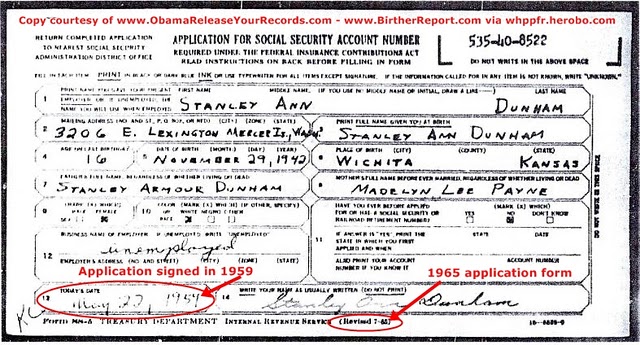 Copy courtesy of www.ObamaReleaseYourRecords.com - www.BirtherReport.com via whppfr.herobo.com
RETURN COMPLETED APPLICATION
TO NEAREST SOCIAL SECURITY
ADMINISTRATION DISTRICT OFFICE
APPLICATION FOR SOCIAL SECURITY ACCOUNT NUMBER
REQUIRED UNDER THE FEDERAL INSURANCE CONTRIBUTIONS ACT
READ INSTRUCTIONS ON BACK BEFORE FILLING IN FORM
535-40-8522
DO NOT WRITE IN THE ABOVE SPACE
FILL IN EACH ITEM. PRINT IN BLACK OR DARK BLUE INK OR USE TYPEWRITER FOR ALL ITEMS EXCEPT SIGNATURE. IF THE INFORMATION CALLED FOR IN ANY ITEM IS NOT KNOWN, WRITE "UNKNOWN."
FIRST NAME
MIDDLE NAME
YOU WILL USE WHEN EMPLOYED
1 STANLEY ANN DUNHAM
MAILING ADDRESS (NO. AND ST., P.O. BOX, OR RFD) (CITY) (ZONE) (STATE)
2 3206 E. LEXINGTON MERCER IS., WASH.
PRINT FULL NAME GIVEN YOU AT BIRTH
STANLEY ANN DUNHAM
4 16
DATE OF BIRTH (MONTH) (DAY) (YEAR)
5 NOVEMBER 29, 1942
PLACE OF BIRTH (CITY) (COUNTY) (STATE)
6 WICHITA KANSAS
FATHER'S FULL NAME, REGARDLESS OF WHETHER LIVING OR DEAD
7 STANLEY ARMOUR DUNHAM
MOTHER'S FULL NAME BEFORE EVER MARRIED, REGARDLESS OF WHETHER LIVING OR DEAD
8 MADELYN LEE PAYNE
9
10
HAVE YOU EVER BEFORE APPLIED
FOR OR HAD A SOCIAL SECURITY OR
RAILROAD RETIREMENT NUMBER?
(MARK (X) WHICH)
YES NO DON'T KNOW
11
IF ANSWER IS "YES" PRINT THE
STATE IN WHICH YOU FIRST
APPLIED AND WHEN
STATE DATE
ALSO PRINT YOUR ACCOUNT
NUMBER IF YOU KNOW IT
ACCOUNT NUMBER
12 unemployed
EMPLOYER'S ADDRESS (NO. AND STREET) (CITY) (ZONE) (STATE)
Application signed in 1959
1965 application form
TODAY'S DATE
13 May 27, 1959
14 WRITE YOUR NAME AS USUALLY WRITTEN (DO NOT PRINT)
Stanley Ann Dunham
FORM SS-5 TREASURY DEPARTMENT INTERNAL REVENUE SERVICE (Revised 7-65)